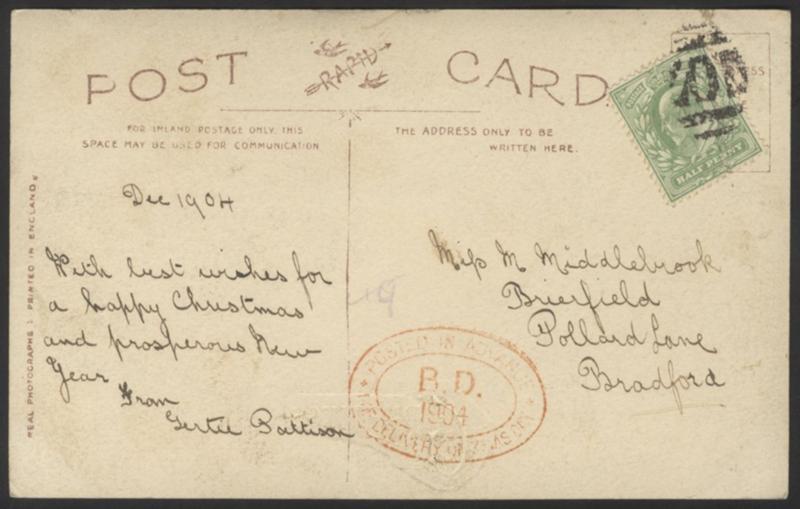 POST CARD
RAPID
FOR INLAND POSTAGE ONLY, THIS
SPACE MAY BE USED FOR COMMUNICATION
THE ADDRESS ONLY TO BE
WRITTEN HERE.
HALF PENNY
REAL PHOTOGRAPHS : PRINTED IN ENGLAND
Dec 1904
With best wishes for
a happy Christmas
and prosperous New
Year
From
Gertie Pattison
Miss M Middlebrook
Brierfield
Pollard Lane
Bradford
POSTED IN ADVANCE
B.D.
1904
DELIVERY